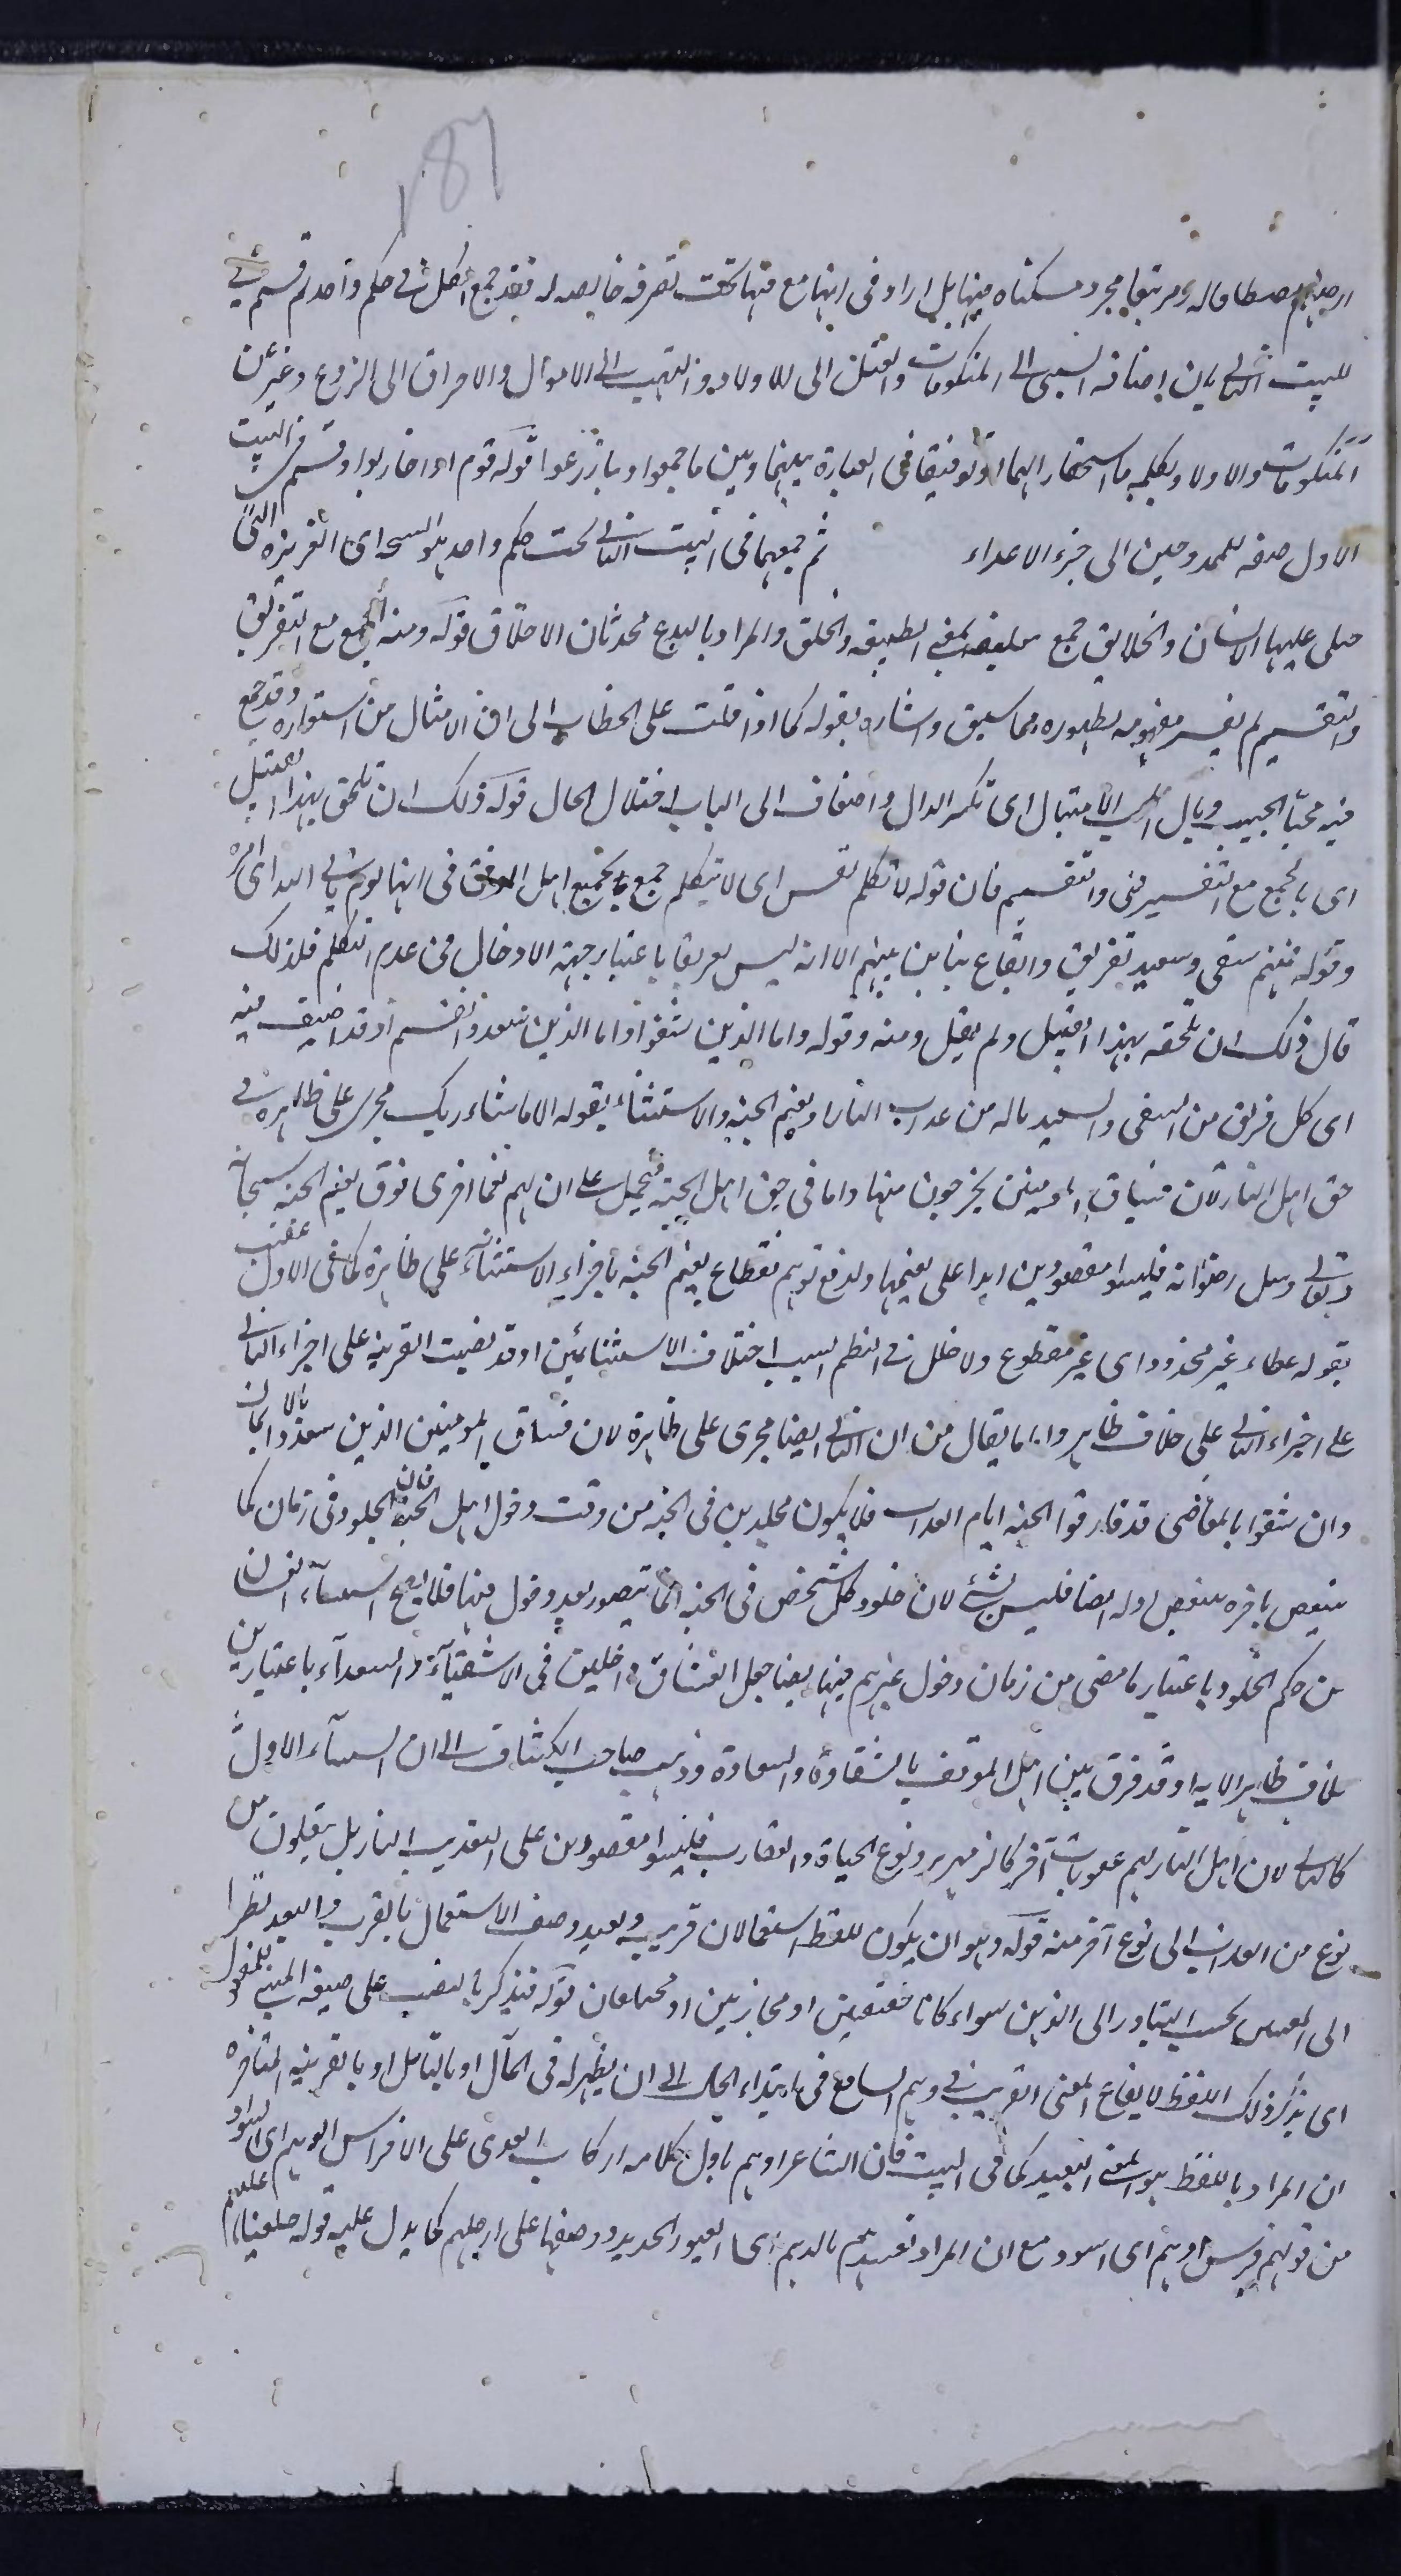 187
ارضهم مصطافا له ومرتبعا مجرد مسكناه فيها بل اراد فى انها مع فيها تحت تصرفه خالصه له فقد جمع الكل فى حكم واحد ثم قسم فى
البيت الثانى بان اضافه السبى الى المنكوحات والقتل الى للاولاد والنهب الى الاموال والاحراق الى الزروع وعبر عن
المنكوحات والاولاد وبكلمه ما استحقارا لهما او توفيقا فى العبارة بينهما وبين ما جمعوا وما زرعوا قوله قوم اذا حاربوا وقسم فى البيت
الاول صفه للممدوحين الى ضر الاعداء ثم جمعهما فى البيت الثانى تحت حكم واحد هو السجية اى الغريزه التى
جبلى عليها الانسان والخلايق جمع خليقه بمعنى الطبيعه والخلق والمراد بالبدع محدثات الاخلاق قوله ومنه الجمع مع التفريق
والتقسيم لم يفسر مفهومه لظهوره مما سبق واشاره بقوله كما اذا قلت على الخطاب الى اخذ الامثال من استعواره وقد جمع
فيه محبا الحبيب وبال الامتبال اى تكسر الدال واضاف الى الباب اختلال الحال قوله ذلك ان تلحق بهذا القبيل
اى بالجمع مع التفسير فى والتقسيم فان قوله لا تكلم نفس اى لا يتكلم جمع بجميع اهل الموقف فى انها يوم ياتى الله اى امره
وقوله فمنهم شقى وسعيد تفريق وايقاع تباين بينهم الا انه ليس تفريقا باعتبار جهة الادخال فى عدم التكلم فلذلك
قال ذلك ان تلحقه بهذا القبيل ولم يقل ومنه وقوله واما الذين شقوا واما الذين سعدوا تقسم او قد اضيف فيه
اى كل فريق من الشقى والسعيد ماله من عذاب النار او نعيم الجنه والاستثناء بقوله الا ما شاء ربك مجرى على ظاهره فى
حق اهل النار لان فساق المومنين يخرجون منها واما فى حق اهل الجنه فيحمل على ان لهم نعما اخرى فوق نعيم الجنه سبحانه
وتعالى ونيل رضوانه فليسوا مقصورين ابدا على نعيمها ولدفع توهم انقطاع نعيم الجنه باجراء الاستثناء على ظاهره كما فى الاول عقب
بقوله عطاء غير مجذوذ اى غير مقطوع ولا خلل فى النظم لسبب اختلاف الاستثنائين او قد نصبت القرينه على اجراء الثانى
على اجراء الثانى على خلاف ظاهر واما ما يقال من ان الثانى ايضا مجرى على ظاهره لان فساق المومنين الذين سعدوا بالايمان
وان شقوا بالمعاصى قد فارقوا الجنه ايام العذاب فلا يكون مخلدين فى الجنه من وقت دخول اهل الجنه فان الخلود فى زمان كما
ينقص باخره ينقص اوله ايضا فليس بشئ لان خلود كل شخص فى الجنه انما يتصور بعد دخول فيها فلا يصح استثناء الفساق
من حكم الخلود باعتبار ما مضى من زمان دخول غيرهم فيها ايضا جعل الفساق داخلين فى الاشقياء والسعداء باعتبارين
خلاف ظاهر الايه او قد فرق بين اهل الموقف بالشقاوة والسعادة وذهب صاحب الكشاف الى ان الاستثناء الاول
كالثانى لان اهل النار لهم عقوبات اخر كالزمهرير ونوع الحياة والعقارب فليسوا مقصورين على العذاب النار بل ينقلون من
نوع من العذاب الى نوع آخر منه قوله وهو ان يكون للفظ استعمالان قريب وبعيد وصف الاستعمال بالقرب والبعد نظرا
الى المعنى بحسب التبادر الى الذهن سواء كانا حقيقيين او مجازيين او مختلفان قوله فيذكر بالنصب على صيغه المبنى للمفعول
اى يذكر ذلك اللفظ لايقاع المعنى القريب فى وهم السامع فى ابتداء الحال الى ان يظهر له فى المآل او بالتامل او بالقرينه المتاخره
ان المراد باللفظ هو المعنى البعيد كما فى البيت فان الشاعر اوهم باول كلامه اركاب العدى على الافراس الدهم اى السود
من قولهم فرس ادهم اى اسود مع ان المراد تقييدهم بالدهم اى القيود الحديد ووضعها على ارجلهم كما يدل عليه قوله خلعنا عليهم